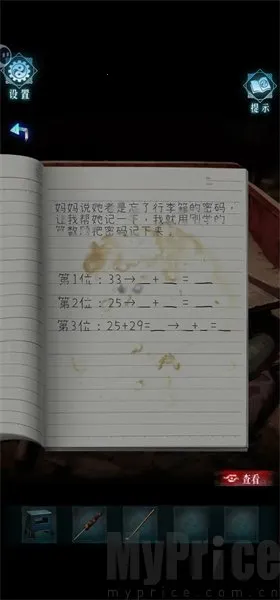 设置
提示
妈妈说她老是忘了行李箱的密码,
让我帮她记一下,我就用刚学的
算数 把密码记下来:
第1位:33→__+__=__
第2位:25→__+__=__
第3位:25+29=__→__+__=__
查看
MyPrice
www.myprice.com.cn